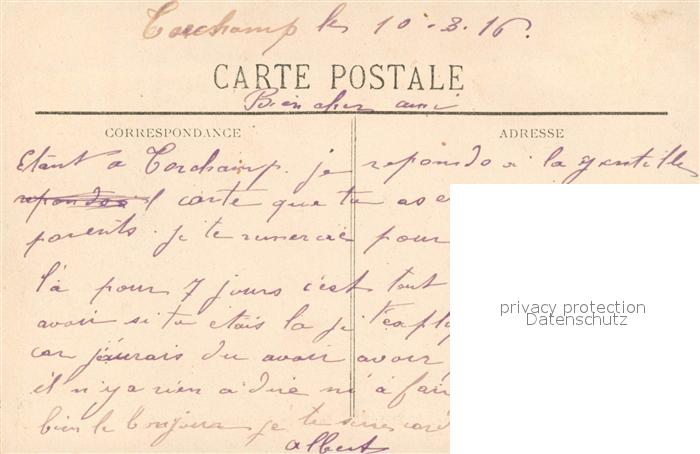 Torchamp le 10-8-16.
CARTE POSTALE
Bien cher ami
CORRESPONDANCE
ADRESSE
Etant a Torchamp. je repondo a la gentille
carte que tu as
parents. je te remercie pour
là pour 7 jours c'est tout
avoir si tu etais la je
car j'aurais du avoir avoir
il n'y a rien a dire ni à fair
bien le bonjour je te
albert
privacy protection
Datenschutz